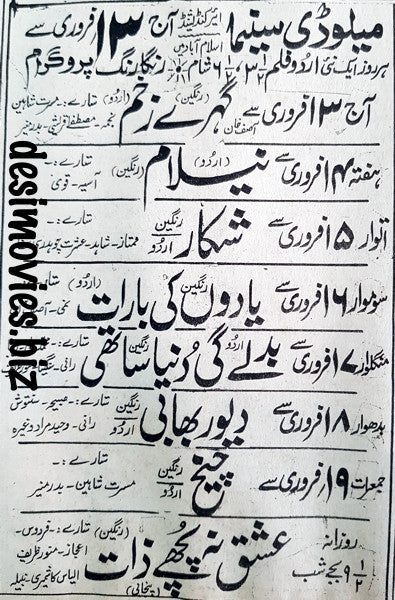 میلوڈی سینما ایرکنڈیشنڈ اسلام آباد میں آج ۱۳ فروری سے
ہر روز ایک نئی اردو فلم ۳½، ۶½ شام رنگارنگ پروگرام
آج ۱۳ فروری سے گہرے زخم (رنگین) (اردو) ستارے:- مسرت شاہین
آصف خان نجمہ- مصطفےٰ قریشی- بدر منیر
ہفتہ ۱۴ فروری سے نیلام (اردو) (رنگین) ستارے:-
آسیہ- قوی
اتوار ۱۵ فروری سے شکار رنگین اردو ستارے:-
ممتاز- شاہد- عشرت چوہدری
سوموار ۱۶ فروری سے یادوں کی بارات رنگین (اردو)
منگلوار ۱۷ فروری سے بدلے گی دُنیا ساتھی اردو رنگین ستارے:-
رانی-
بدھوار ۱۸ فروری سے دیور بھابی رنگین اردو ستارے:- صبیحہ- سنتوش
رانی- وحید مراد وغیرہ
جمعرات ۱۹ فروری سے چیخ رنگین اردو ستارے:-
مسرت شاہین- بدر منیر
روزانہ ۹½ بجے شب عشق نہ پچھے ذات (رنگین) (پنجابی) ستارے:- فردوس-
اعجاز- منور ظریف
الیاس کاشمیری- نبیلہ
desimovies.biz